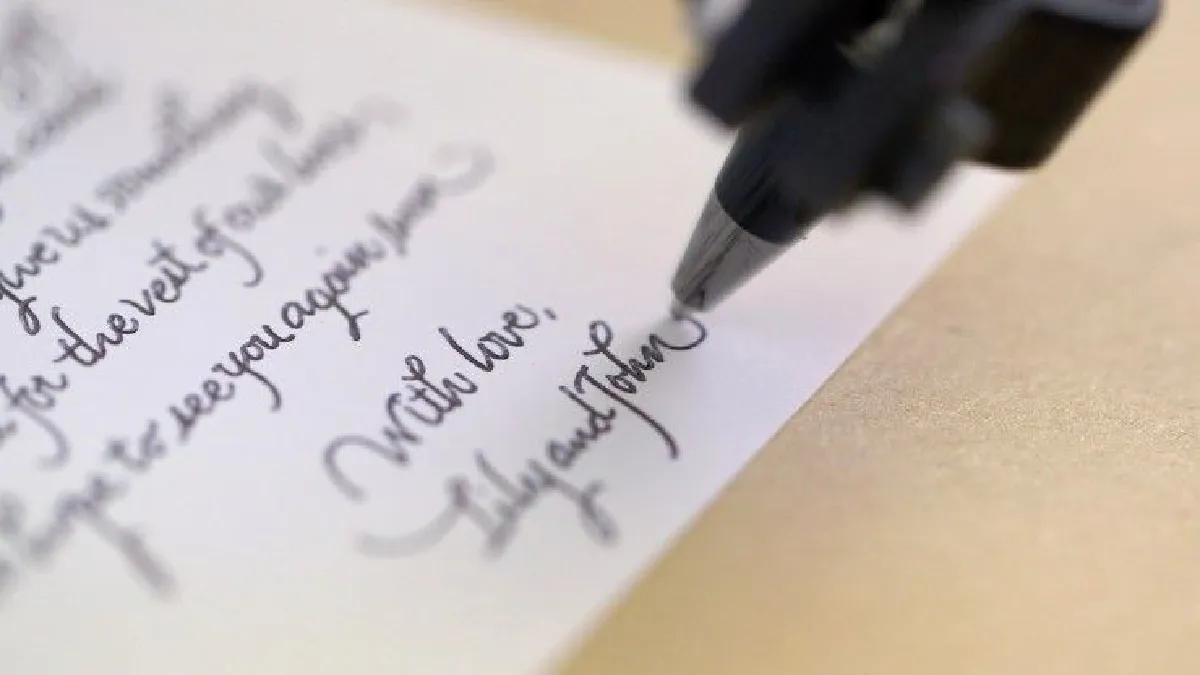 give us something
for the rest of our lives,
hope to see you again soon
With love,
Lily and John